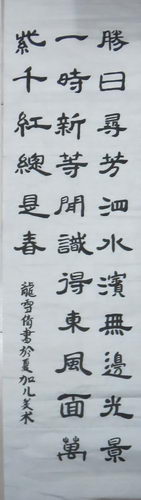 勝日尋芳泗水濱無邊光景
一時新等閒識得東風面萬
紫千紅總是春
龍雪倚書於夏加儿美术